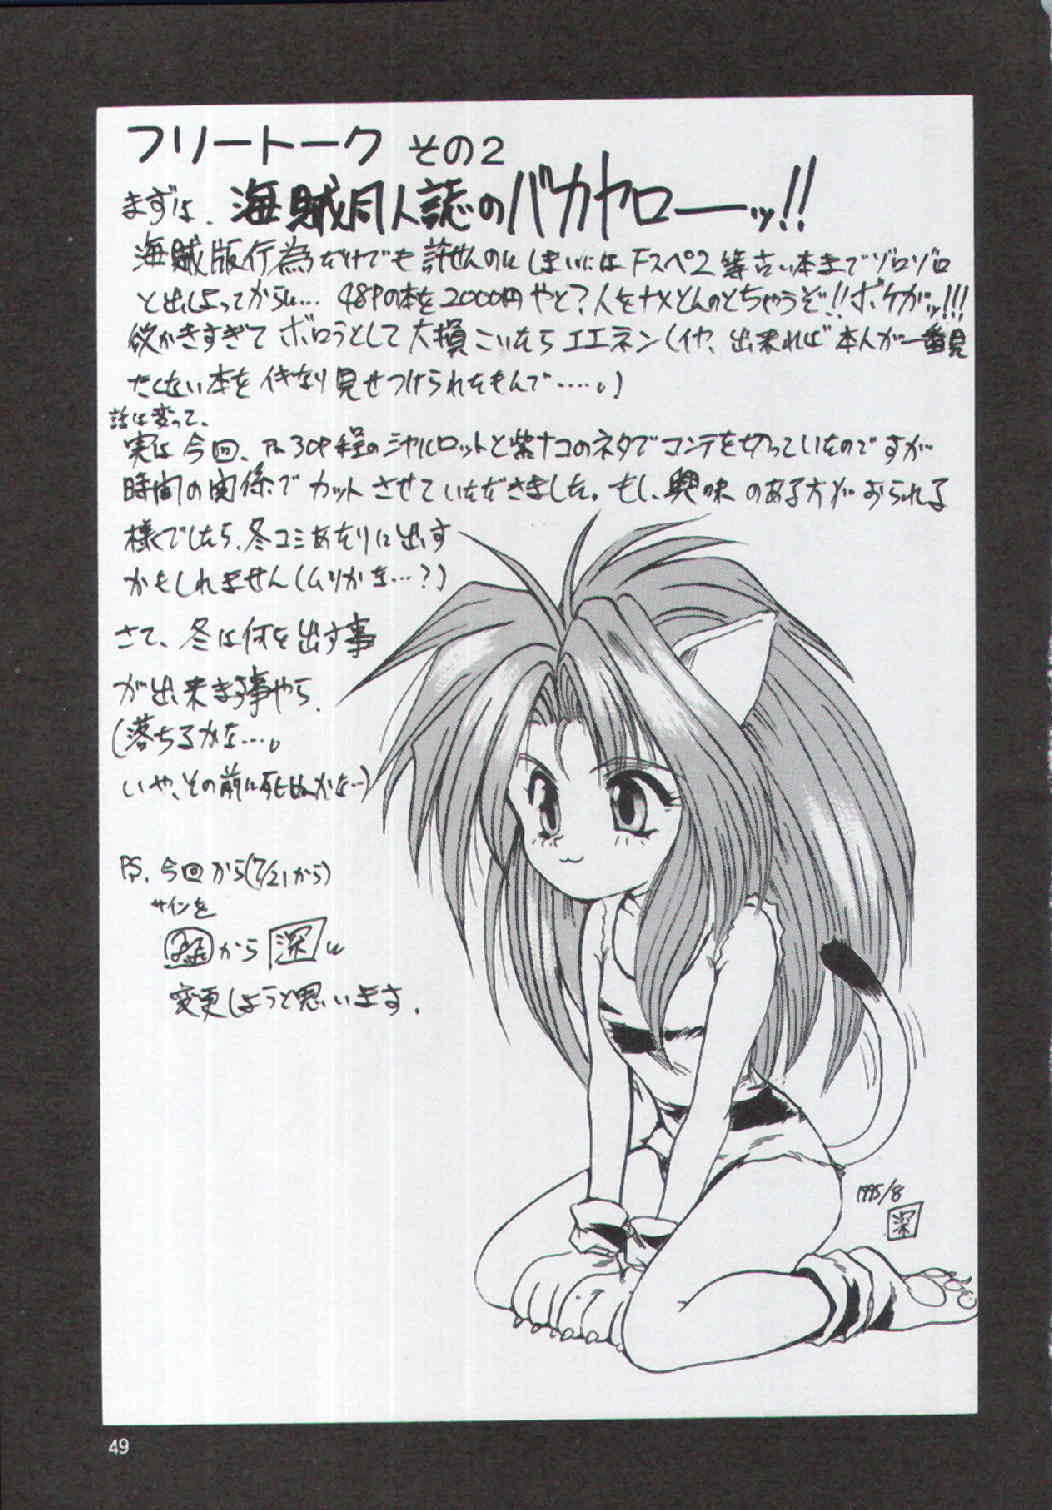 フリートーク その2
まずは、海賊同人誌のバカヤローーッ!!
海賊版行為だけでも許せんのにしまいにはFスペ2等古い本までゾロゾロ
と出しよってからに… 48Pの本を2000円やと?人をナメとんのとちゃうぞ!!ボケがッ!!!
欲かきすぎてボロうとして大損こいたらエエネン(イヤ、出来れば本人が一番見
たくない本をイキなり見せつけられたもんで……。)
話は変って、
実は今回、30P程のシャルロットと紫ナコのネタでコンテを切っていたのですが
時間の関係でカットさせていただきました。もし、興味のある方がおられる
様でしたら、冬コミあたりに出す
かもしれません(ムリかな…?)
さて、冬は何を出す事
が出来ますやら、
(落ちるかな…。
いや、その前に死ぬかな…)
PS. 今回から(7/21から)
サインを
から 深 に
変更しようと思います。
1995/8
深
49